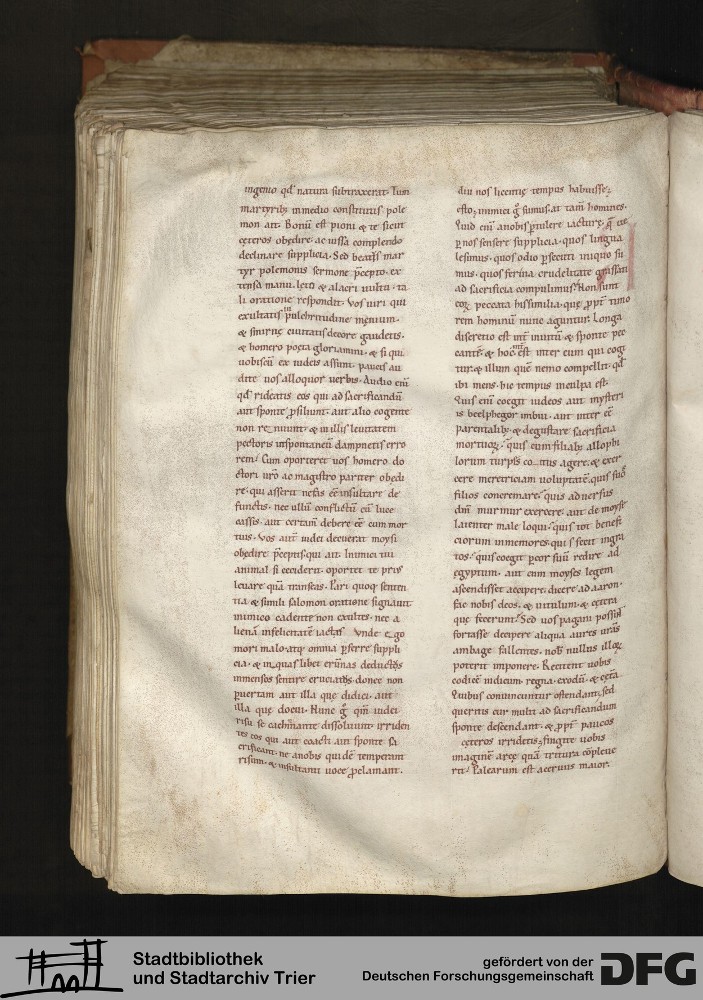 ingenio qđ natura subtraxerat. Tum
martyrib; in medio constitutus pole
mon ait. Bonū est pioni & te sicut
cęteros obędire. ac iussa complendo
declinare supplicia. Sed beatus mar
tyr polemonis sermone p̄cepto. ex
tensa manu. lęto & alacri uultu. ta
li oratione respondit. Vos uiri qui
exultatis in pulchritudine męnium.
& smirnę ciuitatis decore gaudetis.
& homero poeta gloriamini. & si qui
uobiscū ex iudeis assunt. paucis au
dite nos alloquor uerbis. Audio eni
qđ rideatis eos qui ad sacrificandū
aut sponte p̱siliunt. aut alio cogente
non rennuunt. & in illis leuitatem
pectoris ut spontaneū dampnetis erro
rem. Cum oporteret uos homero do
ctori ur̄o ac magistro pariter obedi
re. qui asserit nefas ēē insultare de
functis. nec ullū conflictū cū luce
cassis. aut certam̄ debere ēē cum mor
tuis. Vos aut iudei deceuerat moysi
obędire p̄ceptis. qui ait. Inimici tui
animal si ceciderit. oportet te prius
leuare quā transeas. Pari quoq; senten
tia & simili salomon oratione signauit
inimico cadente non exultes. nec a
lienā infelicitatē iactes. Vnde ego
mori malo. atq; omnia p̱ferre suppli
cia. & in quas libet erūnas deductus
inmensos sentire cruciatus. donec non
p̱uertam aut illa que didici. aut
illa quę docui. Hunc g̊ qm̄ iudei
risu se cachinnante dissoluunt. irriden
tes eos qui aut coacti aut sponte sa
crificant. ne a nobis quidē temperant
risum. & insultanti uoce p̱clamant.
diu nos licentię tempus habuisse;
esto; inimici g̊ sumus. at tam̄ homines.
Quid eni a nobis p̱tulere iacturę. quę ue
p̱ nos sensere supplicia. quos lingua
lesimus. quos odio p̱secuti iniquo su
mus. quos ferina crudelitate grassan
ad sacrificia compulimus. Non sunt
eoꝝ peccata his similia. que p̱pt̄ timo
rem hominū nunc aguntur. Longa
discretio est int̄ inuitū & sponte pec
cantē. & hoc int̄ est inter eum qui cogi
tur. & illum quē nemo compellit. qđ
ibi mens. hic tempus in culpa est.
Quis eni coegit iudeos aut mysteri
is beelphegor imbui. aut inter ēē
parentalib; & degustare sacrificia
mortuoꝝ. quis cum filiab; allophi
lorum turpis coitus agere. & exer
cere meretriciam uoluptatē. quis suos
filios concremare. quis aduersus
dn̄m murmur exercere. aut de moyse
latenter male loqui. quis tot benefi
ciorum inmemores. quis fecit ingra
tos. quis coegit p̱ cor suū redire ad
egyptum. aut cum moyses legem
ascendisset accipere. dicere ad aaron.
fac nobis deos. & uitulum. & cętera
quę fecerunt. Sed uos pagani possunt
fortasse decipere aliqua aures uras
ambage fallentes. nob̄ nullus illoꝝ
poterit imponere. Recitent uobis
codicē iudicum. regna. exodū. & cęt̄a
Quibus conuincuntur ostendant. sed
queritis cur multi ad sacrificandum
sponte descendant. & p̱pt̄ paucos
cęteros irridetis; fingite uobis
imaginē aręę quā tritura cōpleue
rit. Palearum est aceruus maior.
Stadtbibliothek
und Stadtarchiv Trier
gefördert von der
Deutschen Forschungsgemeinschaft
DFG